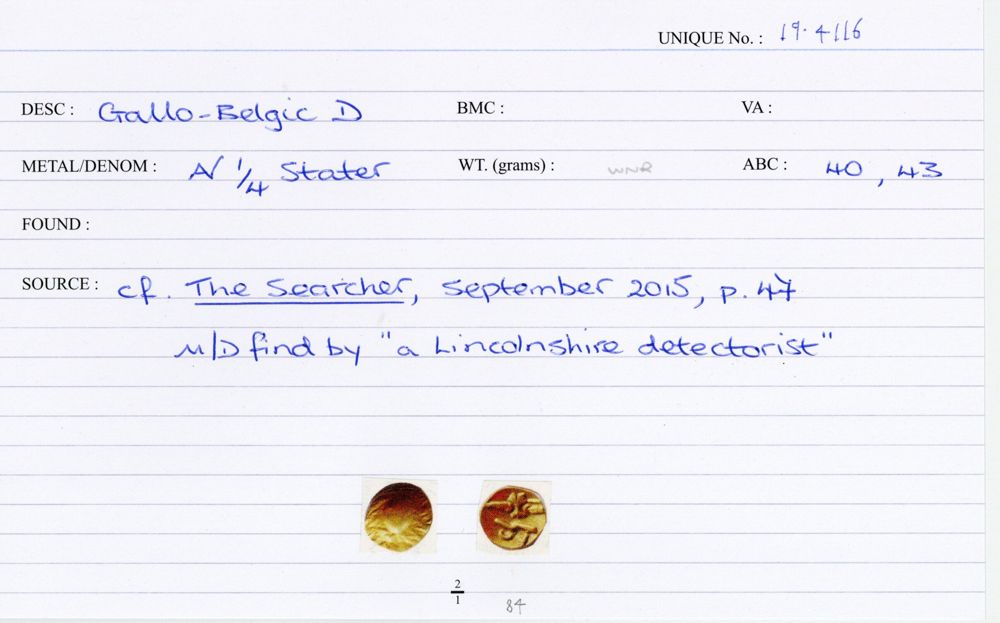 UNIQUE No. : 19.4116
DESC : Gallo-Belgic D BMC : VA :
METAL/DENOM : AV 1/4 Stater WT. (grams) : WNR ABC : 40, 43
FOUND :
SOURCE : cf. The Searcher, September 2015, p. 47
M/D find by "a Lincolnshire detectorist"
2
1
84